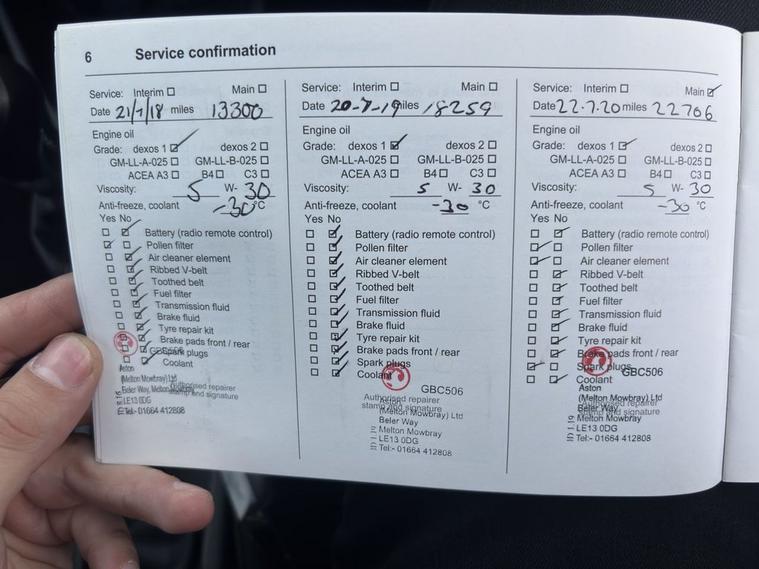 6 Service confirmation
Service: Interim ☐ Main ☐
Date 21/7/18 miles 13300
Engine oil
Grade: dexos 1 ☑ dexos 2 ☐
GM-LL-A-025 ☐ GM-LL-B-025 ☐
ACEA A3 ☐ B4 ☐ C3 ☐
Viscosity: 5 W- 30
Anti-freeze, coolant -30 °C
Yes No
☐ ☑ Battery (radio remote control)
☑ ☐ Pollen filter
☐ ☑ Air cleaner element
☐ ☑ Ribbed V-belt
☐ ☑ Toothed belt
☐ ☑ Fuel filter
☐ ☑ Transmission fluid
☐ ☑ Brake fluid
☐ ☑ Tyre repair kit
Brake pads front / rear
Spark plugs
Coolant
GBC506
Authorised repairer
stamp and signature
Aston
(Melton Mowbray) Ltd
Beler Way, Melton Mowbray
LE13 0DG
Tel:- 01664 412808
Service: Interim ☐ Main ☐
Date 20-7-19 miles 18259
Engine oil
Grade: dexos 1 ☑ dexos 2 ☐
GM-LL-A-025 ☐ GM-LL-B-025 ☐
ACEA A3 ☐ B4 ☐ C3 ☐
Viscosity: 5 W- 30
Anti-freeze, coolant -30 °C
Yes No
☐ ☑ Battery (radio remote control)
☐ ☑ Pollen filter
☐ ☑ Air cleaner element
☐ ☑ Ribbed V-belt
☐ ☑ Toothed belt
☐ ☑ Fuel filter
☐ ☑ Transmission fluid
☐ ☑ Brake fluid
☐ ☑ Tyre repair kit
☐ ☑ Brake pads front / rear
☐ ☑ Spark plugs
☐ ☑ Coolant
GBC506
Authorised repairer
stamp and signature
Aston
(Melton Mowbray) Ltd
Beler Way
Melton Mowbray
LE13 0DG
Tel:- 01664 412808
Service: Interim ☐ Main ☑
Date 22.7.20 miles 22706
Engine oil
Grade: dexos 1 ☑ dexos 2 ☐
GM-LL-A-025 ☐ GM-LL-B-025 ☐
ACEA A3 ☐ B4 ☐ C3 ☐
Viscosity: 5 W- 30
Anti-freeze, coolant -30 °C
Yes No
☐ ☑ Battery (radio remote control)
☑ ☐ Pollen filter
☑ ☐ Air cleaner element
☐ ☑ Ribbed V-belt
☐ ☑ Toothed belt
☐ ☑ Fuel filter
☐ ☑ Transmission fluid
☐ ☑ Brake fluid
☐ ☑ Tyre repair kit
☐ ☑ Brake pads front / rear
☑ ☐ Spark plugs
☐ ☑ Coolant
GBC506
Authorised repairer
stamp and signature
Aston
(Melton Mowbray) Ltd
Beler Way
Melton Mowbray
LE13 0DG
Tel:- 01664 412808